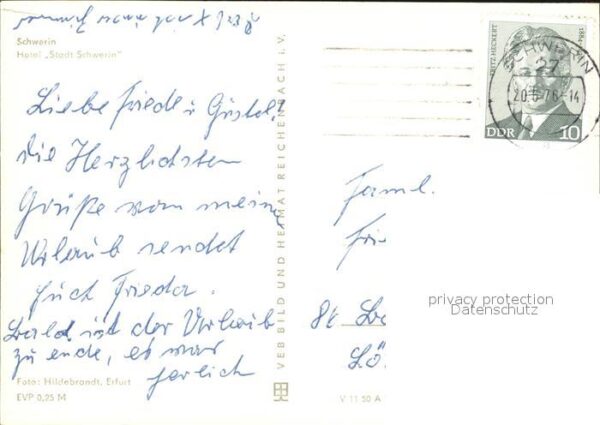 Schwerin
Hotel „Stadt Schwerin"
Liebe Friede u Gustel!
die Herzlichsten
Grüße von meine
Urlaub sendet
Euch Frieda.
bald ist der Urlaub
zu ende, es war
herlich
Foto: Hildebrandt, Erfurt
EVP 0,25 M
VEB BILD UND HEIMAT REICHENBACH i. V.
V 11 50 A
FRITZ HECKERT
1884
DDR 10
SCHWERIN
27
20.5.76-14
Faml.
Fri
privacy protection
Datenschutz
Lö